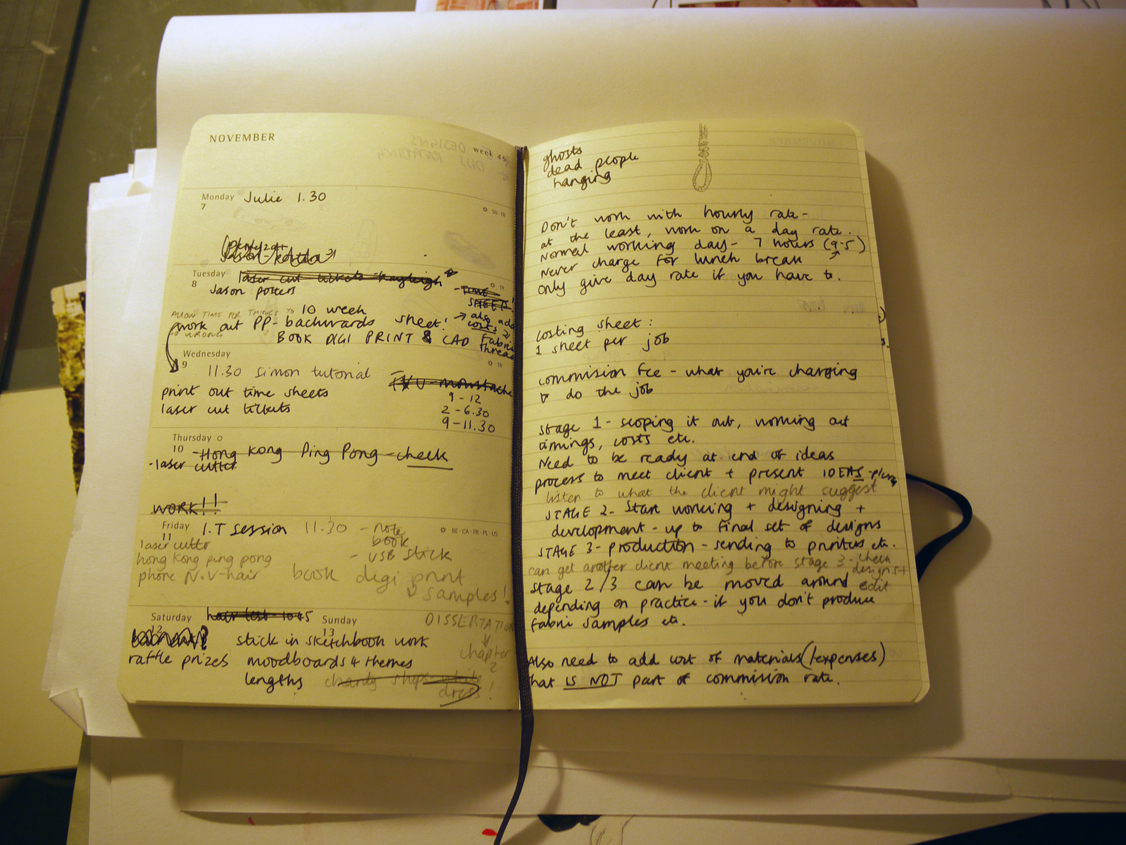 NOVEMBER
week 45
Monday
7
Julie 1.30
Tuesday
8
laser cut tickets - Kayleigh
Jason potters
TIME
SHEETS!
ALLOW TIME FOR THINGS TO
GO WRONG
10 week
work out PP - backwards sheet!
→ also add
costs
BOOK DIGI PRINT & CAD Fabric
thread
Wednesday
9
11.30 Simon tutorial
print out time sheets
laser cut tickets
9 - 12
2 - 6.30
9 - 11.30
Thursday
10
- Hong Kong Ping Pong - check
- laser cutter
WORK!!
Friday
11
I.T session 11.30 - note
book
- USB stick
laser cutter
hong kong ping pong
phone N.V-hair
book digi print
samples!
Saturday
12
hair test 10.45
raffle prizes
Sunday
13
stick in sketchbook work
moodboards & themes
lengths
charity shops white
dress!
DISSERTATION
chapter
2
ghosts
dead people
hanging
Don't work with hourly rate -
at the least, work on a day rate.
Normal working day - 7 hours (9-5)
Never charge for lunch break
Only give day rate if you have to.
Costing sheet :
1 sheet per job
commision fee - what you're charging
to do the job
Stage 1 - scoping it out, working out
timings, costs etc.
Need to be ready at end of ideas
process to meet client + present IDEAS - plus
listen to what the client might suggest
STAGE 2 - Start working + designing +
development - up to final set of designs
STAGE 3 - production - sending to printers etc.
can get another client meeting before stage 3 - check
designs +
edit
Stage 2/3 can be moved around
depending on practice - if you don't produce
fabric samples etc.
Also need to add cost of materials (/expenses)
that IS NOT part of commision rate.